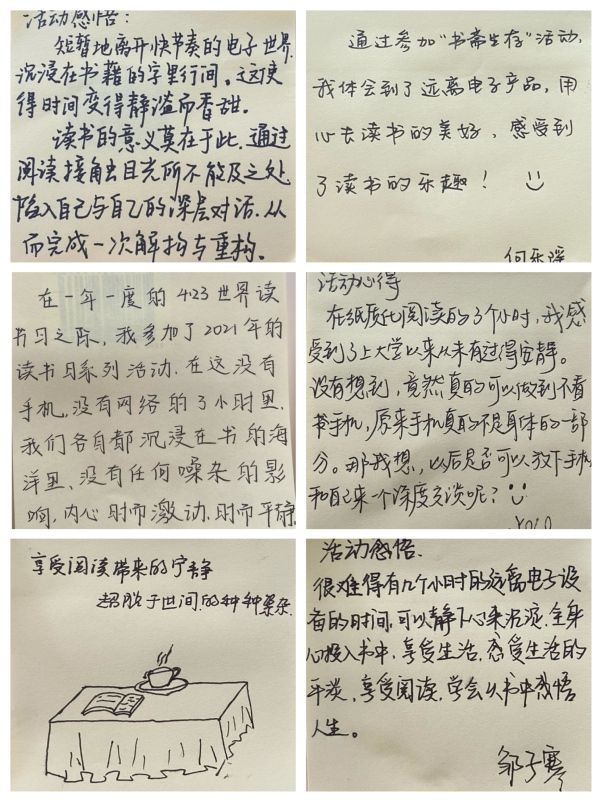 活动感悟:
短暂地离开快节奏的电子世界.
沉浸在书籍的字里行间。这使
得时间变得静谧而香甜。
读书的意义莫在于此.通过
阅读接触目光所不能及之处.
陷入自己与自己的深层对话.从
而完成一次解构与重构。
通过参加“书斋生存”活动,
我体会到了远离电子产品,用
心去读书的美好,感受到
了读书的乐趣!
在一年一度的423世界读
书日之际,我参加了2021年的
读书日系列活动.在这没有
手机,没有网络的3小时里.
我们各自都沉浸在书的海
洋里.没有任何嘈杂的影
响.内心时而激动.时而平静
活动心得
在纸质化阅读的3个小时,我感
受到了上大学以来从未有过得安静。
没有想到,竟然真的可以做到不看
手机,原来手机真的不是身体的一部
分。那我想,以后是否可以放下手机
和自己来个深度交谈呢?
YOLO
享受阅读带来的宁静
超脱于世间的种种
活动感悟.
很难得有几个小时的远离电子设
备的时间.可以静下心来沉淀.全身
心投入书中.享受生活.感受生活的
平淡.享受阅读.学会从书中感悟
人生。
邹子寒